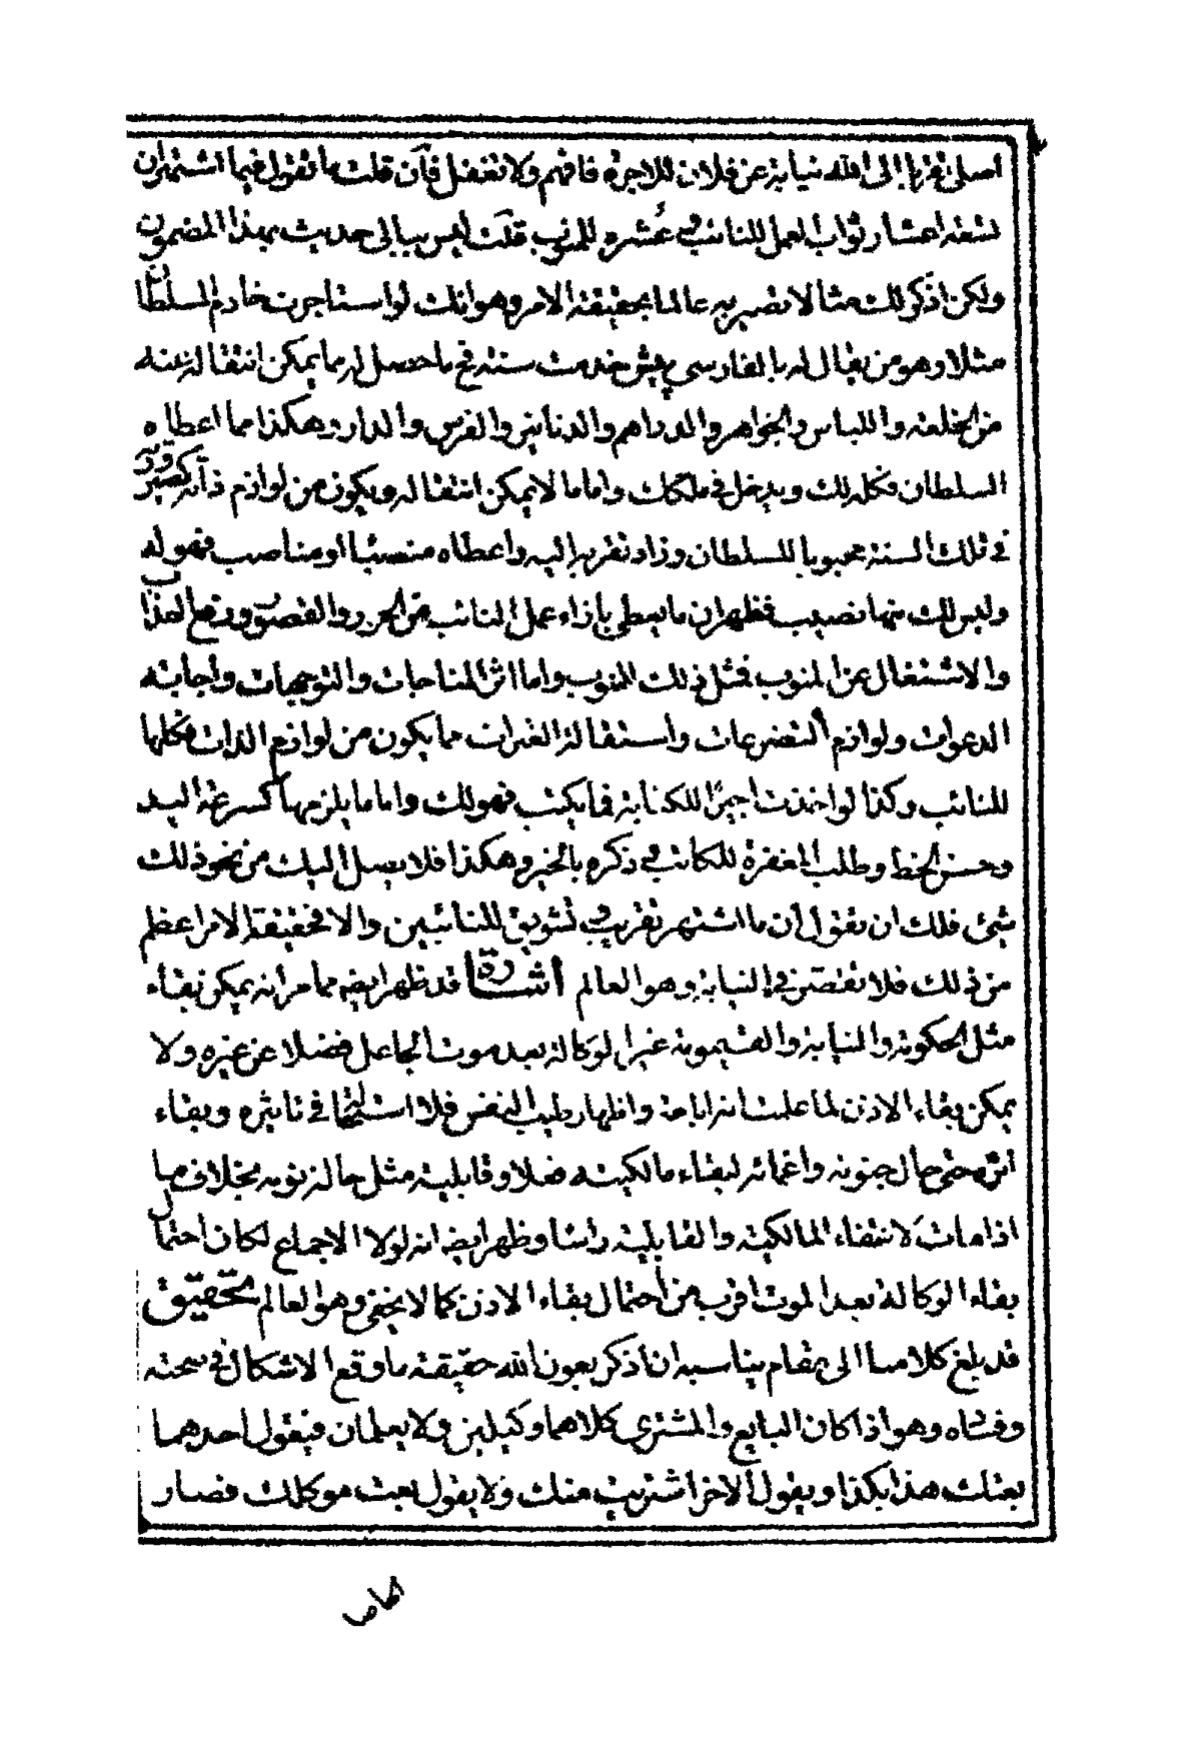 اصلى تقربا الى الله نيابة عن فلان للاجرة فافهم ولا تغفل فان قلت ما تقول فيما اشتهر ان
تسعة اعشار ثواب العمل للنائب وعشره للمنوب قلت ليس ببالى حديث بهذا المضمون
ولكن اذكر لك مثالا تصير به عالما بحقيقة الامر وهو انك لو استاجرت خادم السلطان
مثلا وهو من يقال له بالفارسي پيش خدمت سنة فح ما حصل له مما يمكن انتقاله عنه
من الخلعة واللباس والجواهر والدراهم والدنانير والفرس والدار وهكذا مما اعطاه
السلطان فكله لك ويدخل في ملكك واما ما لا يمكن انتقاله ويكون من لوازم ذاته كصيرورته
في تلك السنة محبوبا للسلطان وزاد تقربه اليه واعطاه منصبا او مناصب فهو له
وليس لك منها نصيب فظهر ان ما يعطى بازاء عمل النائب من الحور والقصور ورفع العذاب
والاشتغال عن المنوب فمثل ذلك للمنوب واما اثر المناجات والتوجهات واجابة
الدعوات ولوازم التضرعات واستقالة العثرات مما يكون من لوازم الذات فكلها
للنائب وكذا لو اخذت اجيرا للكتابة فما يكتب فهو لك واما ما يلزمها كسرعة اليد
وحسن الخط وطلب المغفرة للكاتب وذكره بالخير وهكذا فلا يصل اليك من نحو ذلك
شئ فلك ان تقول ان ما اشتهر تقريب وتشويق للنائبين والا فحقيقة الامر اعظم
من ذلك فلا تقتصر في النيابة وهو العالم اشارة قد ظهر ايضا مما مر انه يمكن بقاء
مثل الحكومة والنيابة والقيمومة غير الوكالة بعد موت الجاعل فضلا عن غيره ولا
يمكن بقاء الاذن لما علمت انه اباحة واظهار طيب النفس فلا استدامة في تاثيره وبقاء
اثره حتى حال جنونه واغمائه لبقاء مالكيته فعلا وقابلية مثل حالة نومه بخلاف ما
اذا مات لانتفاء المالكية والقابلية راسا وظهر ايضا انه لولا الاجماع لكان احتمال
بقاء الوكالة بعد الموت اقرب من احتمال بقاء الاذن كما لا يخفى وهو العالم تحقيق
قد بلغ كلامنا الى مقام يناسبه ان اذكر بعون الله حقيقة ما وقع الاشكال في صحته
وفساده وهو اذا كان البايع والمشتري كلاهما وكيلين ولا يعلمان فيقول احدهما
بعتك هذا بكذا ويقول الاخر اشتريت منك ولا يقول بعت موكلك فصار